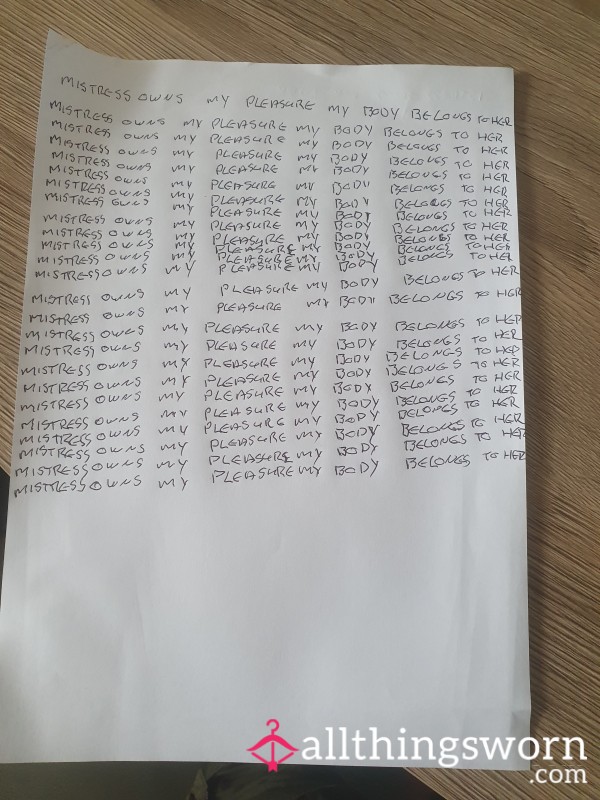 MISTRESS OWNS MY PLEASURE MY BODY BELONGS TO HER
MISTRESS OWNS MY PLEASURE MY BODY BELONGS TO HER
MISTRESS OWNS MY PLEASURE MY BODY BELONGS TO HER
MISTRESS OWNS MY PLEASURE MY BODY BELONGS TO HER
MISTRESS OWNS MY PLEASURE MY BODY BELONGS TO HER
MISTRESS OWNS MY PLEASURE MY BODY BELONGS TO HER
MISTRESS OWNS MY PLEASURE MY BODY BELONGS TO HER
MISTRESS OWNS MY PLEASURE MY BODY BELONGS TO HER
MISTRESS OWNS MY PLEASURE MY BODY BELONGS TO HER
MISTRESS OWNS MY PLEASURE MY BODY BELONGS TO HER
MISTRESS OWNS MY PLEASURE MY BODY BELONGS TO HER
MISTRESS OWNS MY PLEASURE MY BODY BELONGS TO HER
MISTRESS OWNS MY PLEASURE MY BODY BELONGS TO HER
MISTRESS OWNS MY PLEASURE MY BODY BELONGS TO HER
MISTRESS OWNS MY PLEASURE MY BODY BELONGS TO HER
MISTRESS OWNS MY PLEASURE MY BODY BELONGS TO HER
MISTRESS OWNS MY PLEASURE MY BODY BELONGS TO HER
MISTRESS OWNS MY PLEASURE MY BODY BELONGS TO HER
MISTRESS OWNS MY PLEASURE MY BODY BELONGS TO HER
MISTRESS OWNS MY PLEASURE MY BODY BELONGS TO HER
MISTRESS OWNS MY PLEASURE MY BODY BELONGS TO HER
MISTRESS OWNS MY PLEASURE MY BODY BELONGS TO HER
MISTRESS OWNS MY PLEASURE MY BODY BELONGS TO HER
MISTRESS OWNS MY PLEASURE MY BODY BELONGS TO HER
MISTRESS OWNS MY PLEASURE MY BODY BELONGS TO HER
allthingsworn
.com